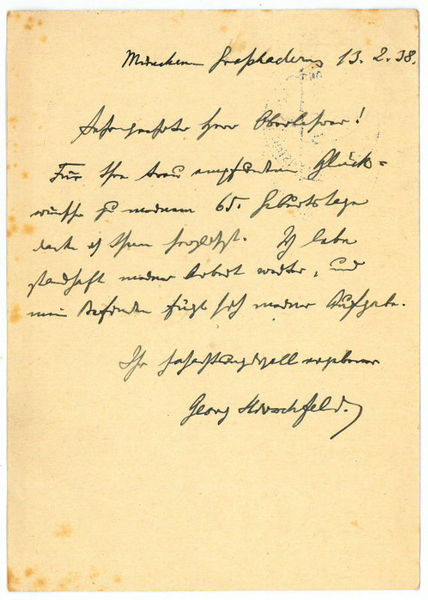 München Großhadern 13. 2. 38.
Sehr geehrter Herr Oberlehrer!
Für Ihre treu empfundenen Glück-
wünsche zu meinem 65. Geburtstage
danke ich Ihnen herzlichst. Ich lebe
standhaft meiner Arbeit weiter, und
mein Befinden fügt sich meiner Aufgabe.
Ihr hochachtungsvoll ergebener
Georg Hirschfeld.